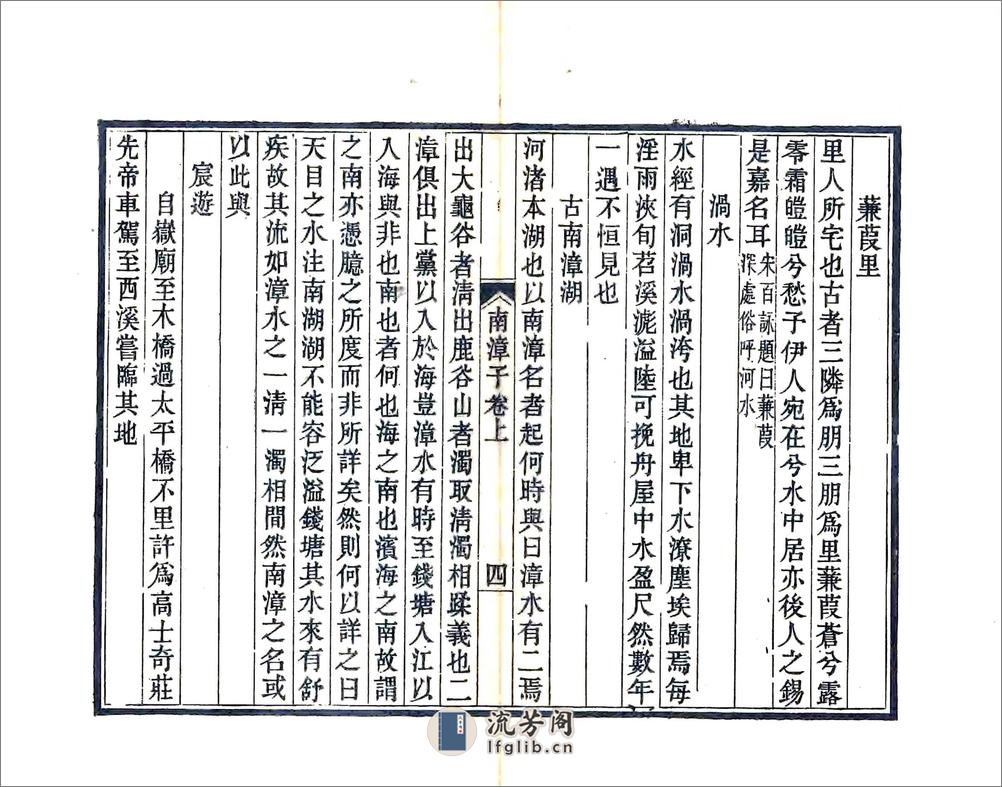 蒹葭里
里人所宅也古者三隣爲朋三朋爲里蒹葭蒼兮露
零霜皚皚兮愁子伊人宛在兮水中居亦後人之錫
是嘉名耳宋百詠題曰蒹葭
深處俗呼河水
渦水
水經有洞渦水渦洿也其地卑下水潦塵埃歸焉每
淫雨浹旬苕溪漉溢陸可挽舟屋中水盈尺然數年
一遇不恒見也
古南漳湖
河渚本湖也以南漳名者起何時與曰漳水有二焉
出大黽谷者淸出鹿谷山者濁取淸濁相蹂義也二
南漳子卷上
四
漳俱出上黨以入於海豈漳水有時至錢塘入江以
入海與非也南也者何也海之南也濱海之南故謂
之南亦憑臆之所度而非所詳矣然則何以詳之曰
天目之水注南湖湖不能容泛溢錢塘其水來有舒
疾故其流如漳水之一淸一濁相間然南漳之名或
以此與
宸遊
自嶽廟至木橋過太平橋不里許爲高士奇莊
先帝車駕至西溪嘗臨其地
流芳阁
lfglib.cn